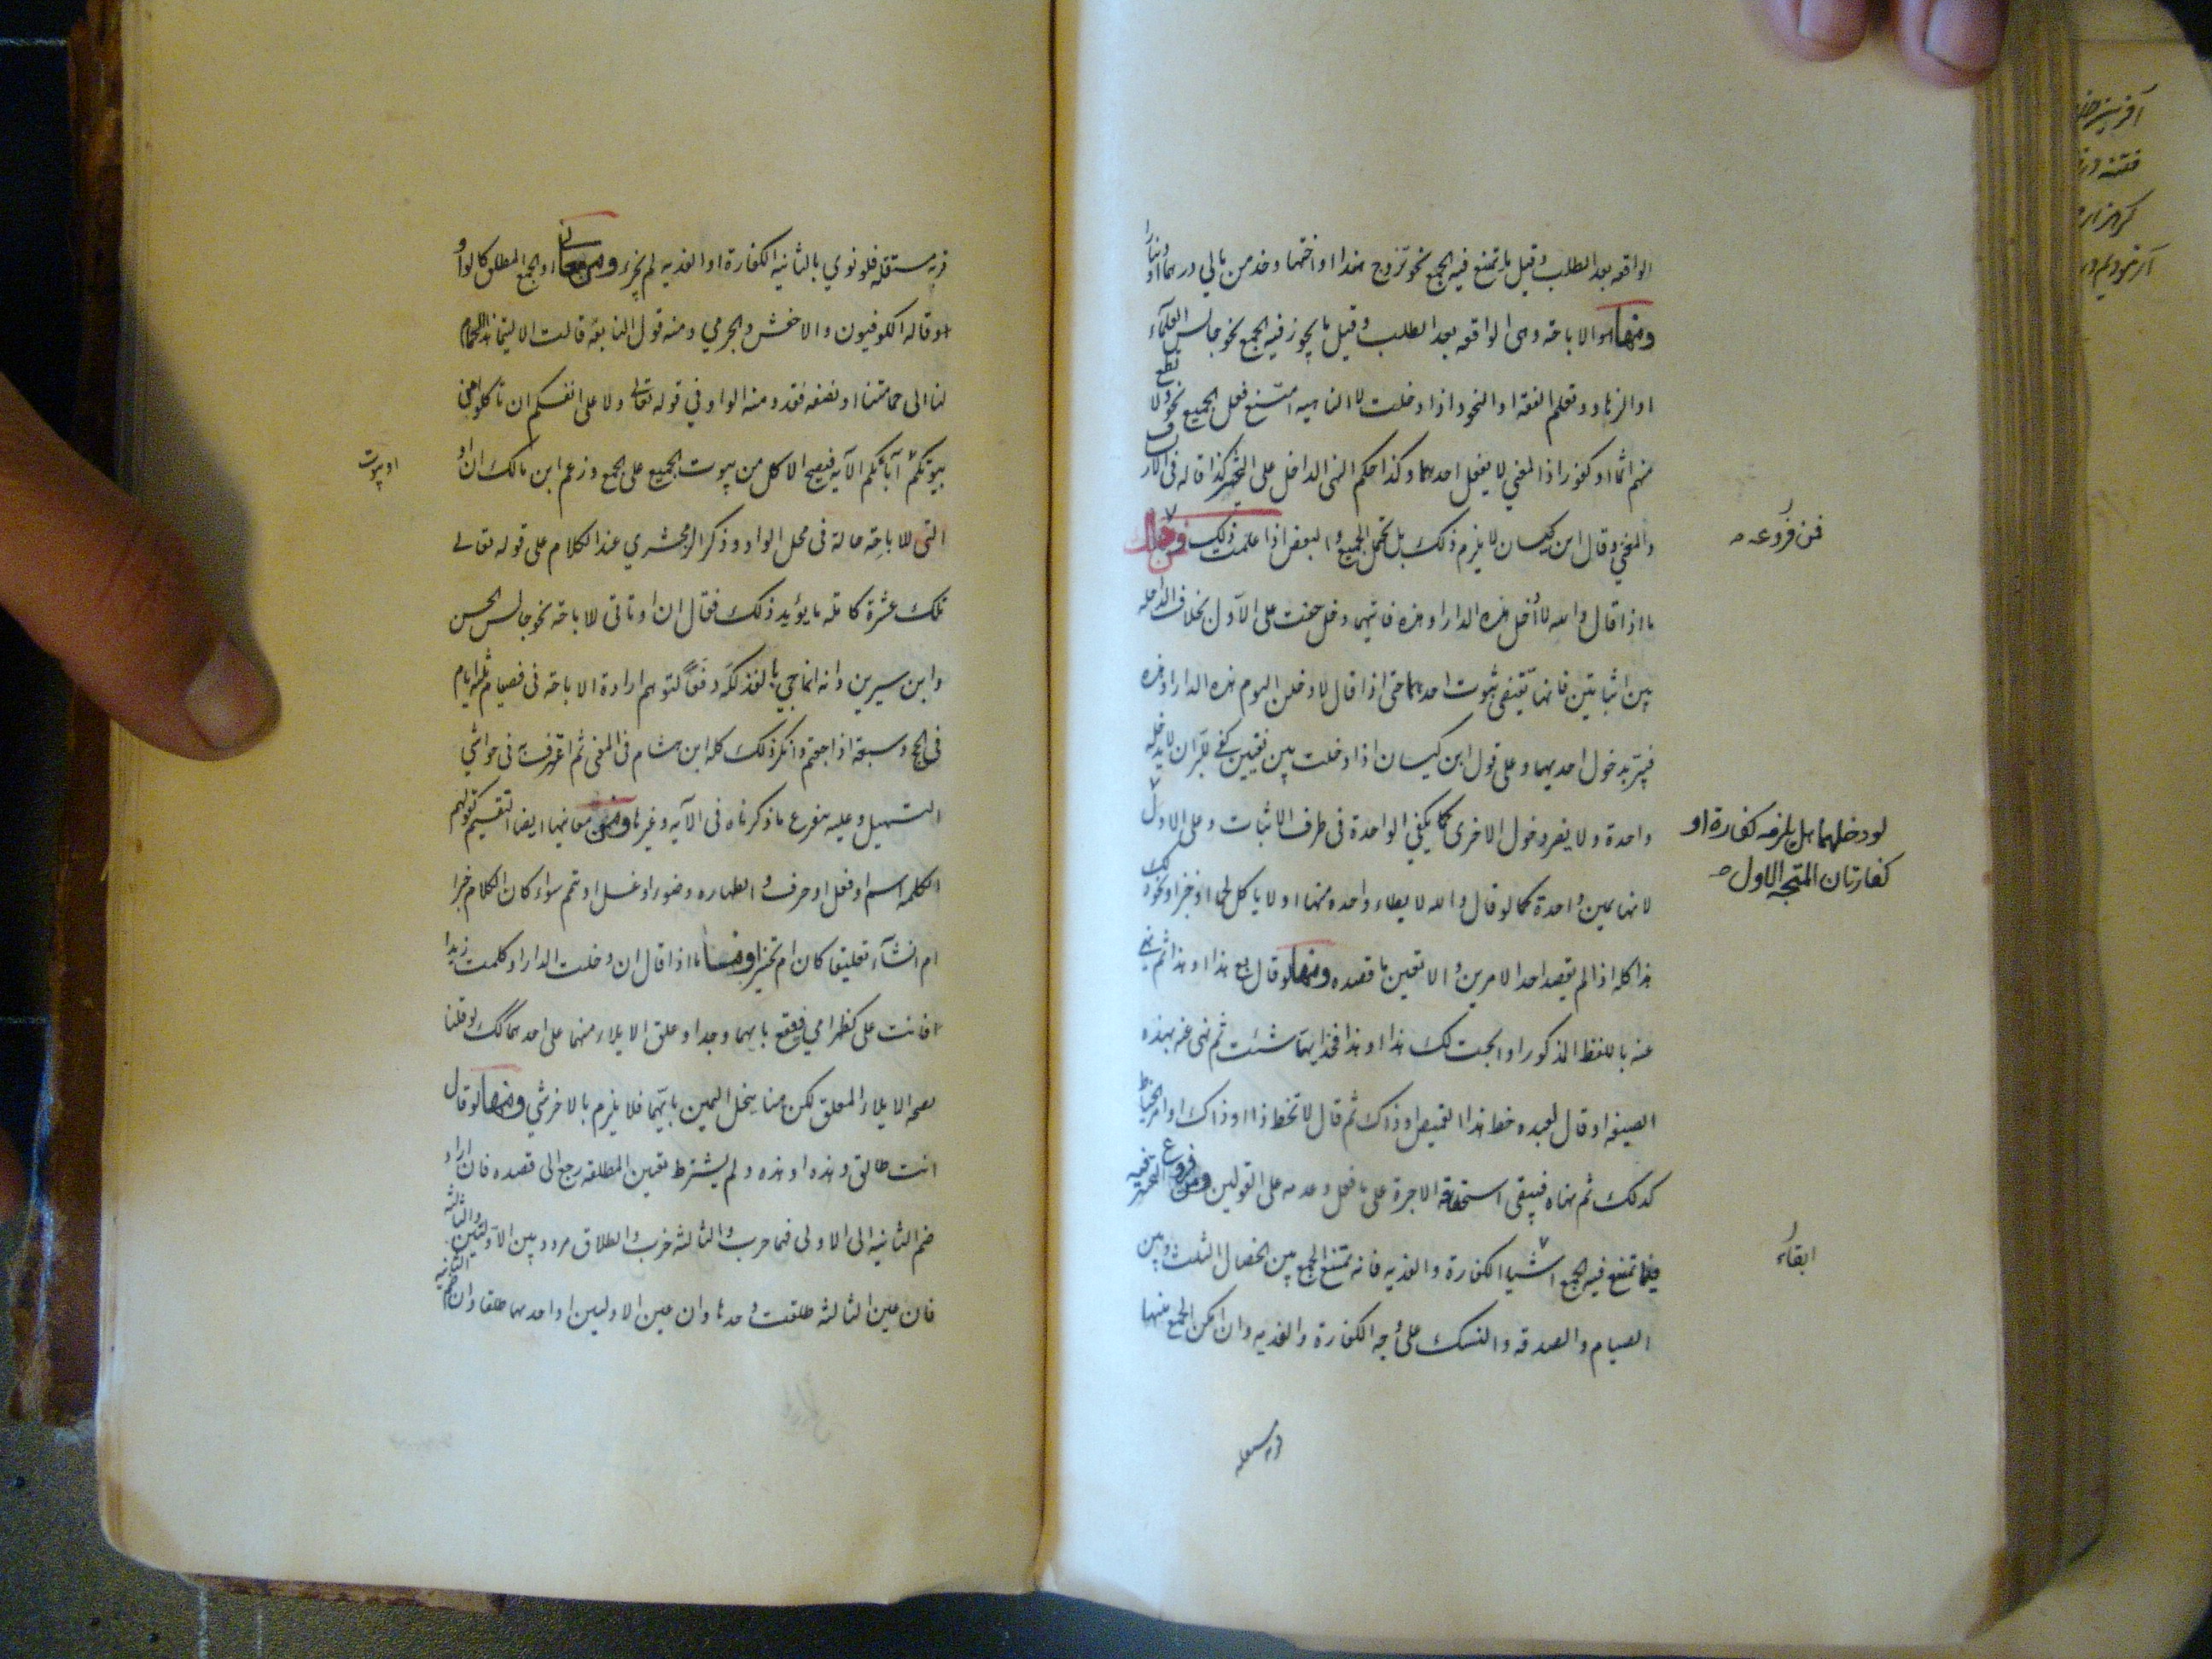 الواقعه بعد الطلب وقيل ما يمتنع فيه الجمع نحو تزوج هندا او اختها وخذ من مالي درهما او دينارا
ومنها الاباحة وهى الواقعه بعد الطلب وقيل ما يجوز فيه الجمع نحو جالس العلماء
او الزهاد وتعلم الفقه او النحو واذا دخلت لا الناهيه امتنع فعل الجميع نحو ولا تطع
منهم اثما او كفورا اذ المعنى لا تفعل احدهما وكذا حكم النهى الداخل على التخيير كذا قاله فى
والمغني وقال ابن كيسان لا يلزم ذلك بل يحتمل الجميع والبعض اذا علمت ذلك
ما اذا قال والله لا أدخل هذه الدار او هذه فايتهما دخل حنث على الاول بخلاف الداخله
بين اثباتين فانها تقتضى ثبوت احدهما حتى اذا قال لادخلن اليوم هذه الدار او هذه
فيبر بدخول احديهما وعلى قول ابن كيسان اذا دخلت بين نفيين كفى للبر ان لا يدخله
واحدة ولا يضر دخول الاخرى كما يكفي الواحدة فى طرف الاثبات وعلى الاول
لانها يمين واحدة كما لو قال والله لا يطاء واحده منهما او لا ياكل لحما او خبزا ونحو ذلك
هذا كله اذا لم يقصد احد الامرين والا تعين ما قصده ومنها لو قال بع هذا او هذا ثم نهى
عنه باللفظ المذكور او ابحت لك هذا او هذا فخذ ايهما شئت ثم نهى عنه بهذه
الصيغه او قال لعبده خط هذا القميص او ذاك ثم قال لا تخط ذا او ذاك او امر الخياط
كذلك ثم نهاه فيبقى استحقاقه الاجرة على ما فعل وعدمه على القولين ومن فروع التخيير
فيما تمتنع فيه الجمع اشيا الكفارة والفديه فانه تمتنع الجمع بين الخصال الثلث وبين
الصيام والصدقه والنسك على وجه الكفارة والفديه وان امكن الجمع منها
قربه مستقله
فمن فروعه
لو دخلهما هل يلزمه كفارة او
كفارتان المتجه الاول
ابقاء
قربه مستقله فلو نوي بالثانيه الكفارة او الفديه لم يجزء ومن معانى او الجمع المطلق كالواو
وقاله الكوفيون والاخفش والجرمي ومنه قول النابغه قالت الا ليتما هذا الحمام
لنا الى حمامتنا او نصفه فقد ومنه الواو في قوله تعالى ولا على انفسكم ان تاكلوا من
بيوتكم آبائكم الآيه فيصح الاكل من بيوت الجميع على الجمع وزعم ابن مالك ان او
التى للاباحة حالة فى محل الواو وذكر الزمخشري عند الكلام على قوله تعالى
تلك عشرة كاملة ما يؤيد ذلك فقال ان او تاتى للاباحة نحو جالس الحسن
وابن سيرين وانه انما جيي بالفذلكه دفعاً لتوهم ارادة الاباحة فى فصيام ثلثة ايام
فى الحج وسبعة اذا رجعتم وانكر ذلك كله ابن هشام فى المغنى ثم اعترف به فى حواشي
التسهيل وعليه يتفرع ما ذكرناه فى الآيه وغيرها ومن معانيها ايضا التقسيم كقولهم
الكلمة اسم او فعل او حرف والطهاره وضوء او غسل او تيمم سواء كان الكلام خبرا
ام انشآء تعليقا كان ام تنجيزا ومنها ما اذا قال ان دخلت الدار او كلمت زيدا
فانت على كظهر امي فيقع بايهما وجد او علق الايلاء منهما على احدهما لو قلنا
بصحه الايلاء المعلق لكن هنا ينحل اليمين بايتهما فلا يلزم بالاخر شي ومنها لو قال
انت طالق وهذه او هذه ولم يشترط تعيين المطلقه رجع الى قصده فان اراد
ضم الثانيه الى الاولى فهما حزب والثالثه حزب والطلاق مردد بين الاولتين والثالثه
فان عين الثالثه طلقت وحدها وان عين الاوليين او احدهما طلقا وان ضم الثانيه
او بيوت